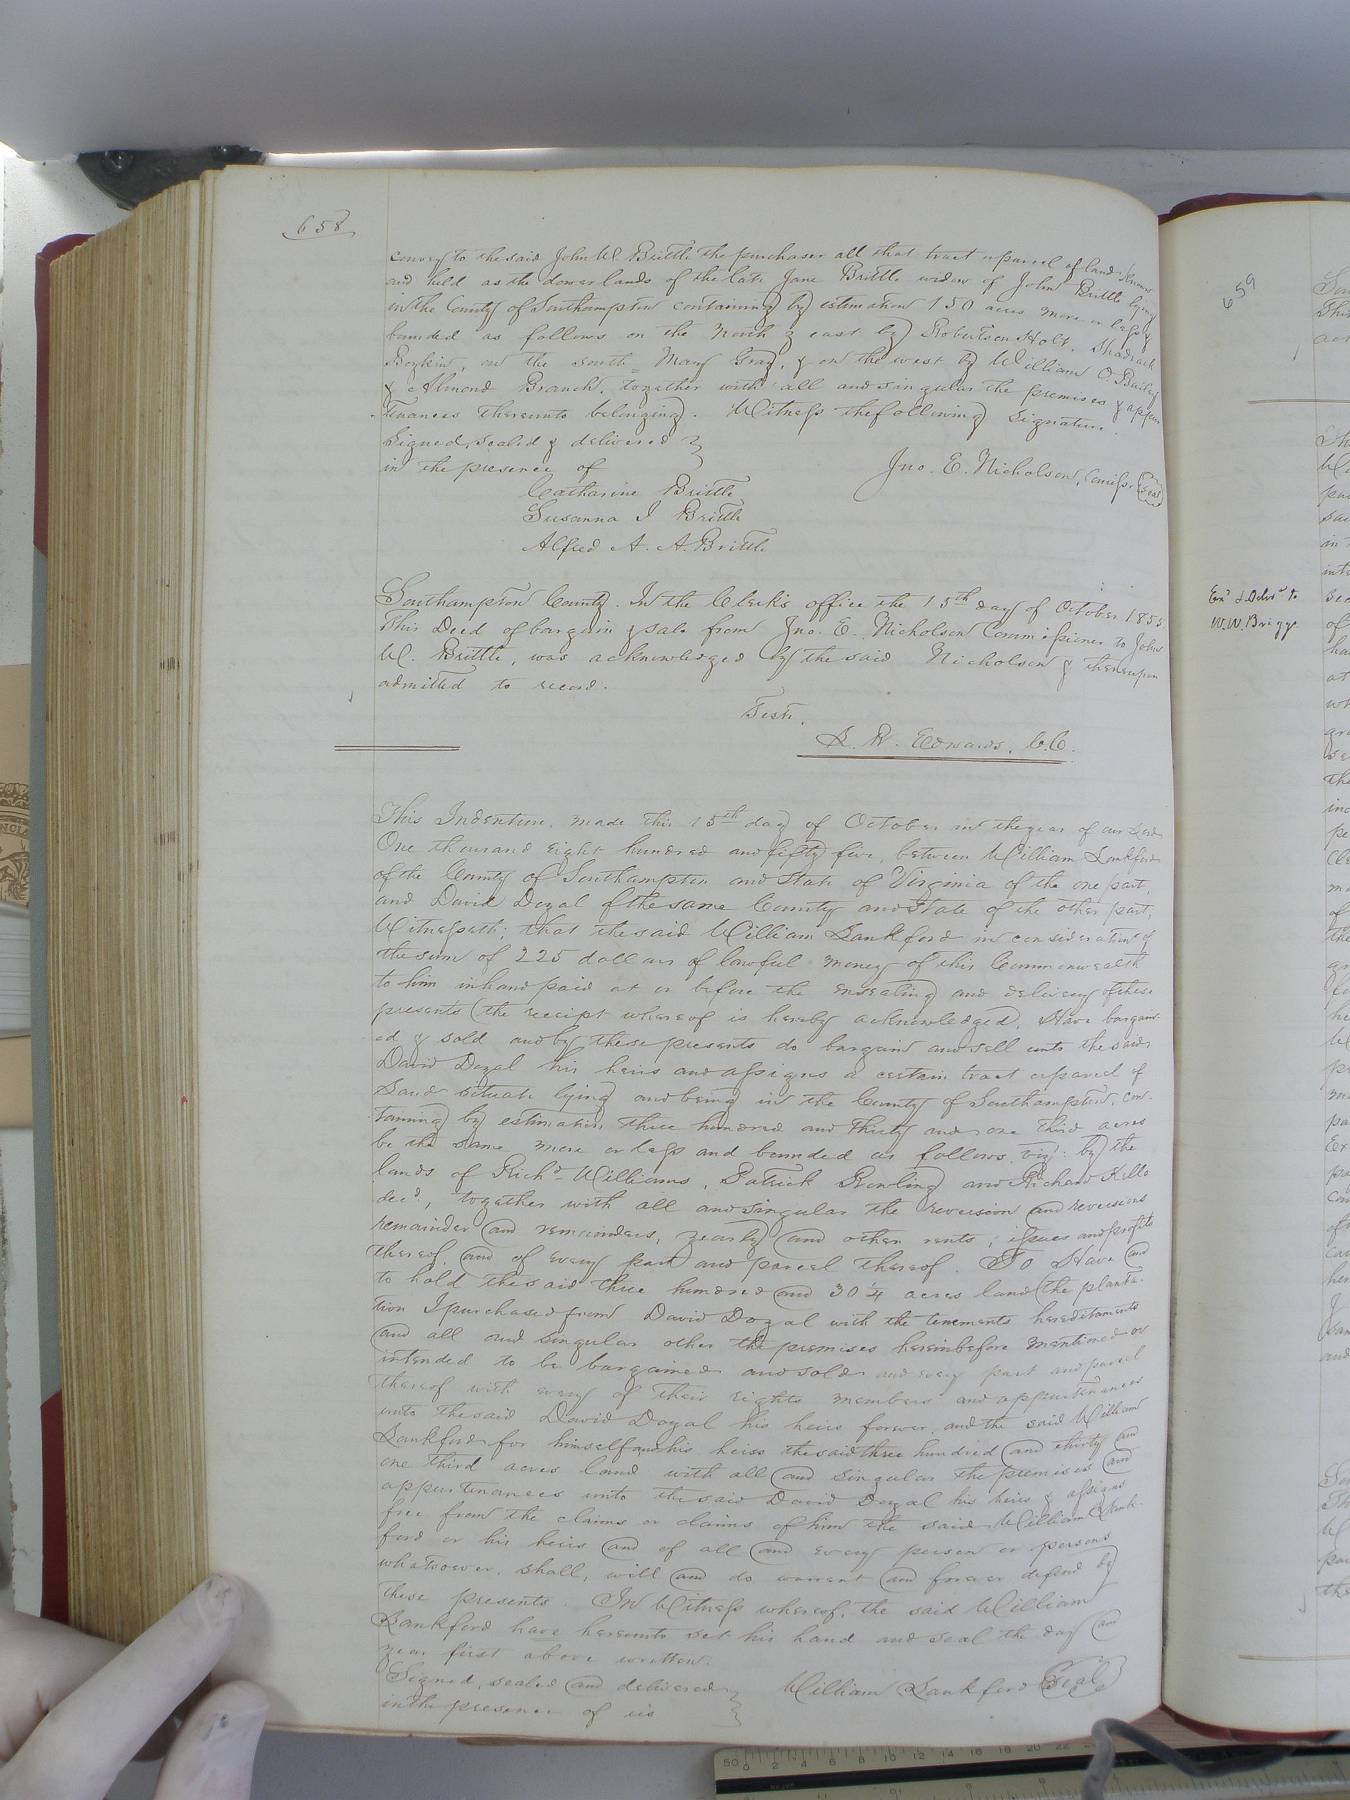 658
convey to the said John W Brittle the purchaser all that tract or parcel of land known
and held as the dower lands of the late Jane Brittle widow of John Brittle lying
in the County of Southampton containing by estimation 150 acres more or less &
bounded as follows on the North & east by Robertson Holt, Shadrack
Boykin, on the south = Mary Gray, & on the west by William O. Bailey
& Almond Branch, together with all and singular the premises & appur
tenances thereunto belonging. Witness the following signature.
Signed, sealed & delivered
in the presence of
Jno. E. Nicholson, Comiss. Seal
Catharine Brittle
Susanna J Brittle
Alfred A. A. Brittle
Southampton County. In the Clerk's office the 15th day of October 1855
This Deed of bargain & sale from Jno. E. Nicholson Commissioner to John
W. Brittle, was acknowledged by the said Nicholson & thereupon
admitted to record.
Teste,
L. R. Edwards, C.C.
This Indenture, made this 15th day of October in the year of our Lord
One thousand eight hundred and fifty five, between William Lankford
of the County of Southampton and State of Virginia of the one part,
and David Doyal of the same County and State of the other part;
Witnesseth; that the said William Lankford in consideration of
the sum of 225 dollars of lawful money of this Commonwealth
to him in hand paid at or before the ensealing and delivery of these
presents (the receipt whereof is hereby acknowledged, Have bargain-
ed & sold and by these presents do bargain and sell unto the said
David Doyal his heirs and assigns a certain tract or parcel of
Land situate lying and being in the County of Southampton, con-
taining by estimation three hundred and thirty and one third acres
be the same more or less and bounded as follows viz: by the
lands of Richd Williams, Patrick Bowling and Richard Kello
decd, together with all and singular the reversion and reversions
remainder and remainders, yearly and other rents; issues and profits
thereof, and of every part and parcel thereof. To Have and
to hold the said three hundred and 30 1/4 acres land (the planta-
tion I purchased from David Doyal with the tenements hereditaments
and all and singular other the premises hereinbefore mentioned or
intended to be bargained and sold and every part and parcel
thereof with every of their rights members and appurtenances
unto the said David Doyal his heirs forever. and the said William
Lankford for himself and his heirs the said three hundred and thirty and
one third acres land with all and singular the premises and
appurtenances unto the said David Doyal his heirs & assigns
free from the claims or claims of him the said William Lank-
ford or his heirs and of all and every person or persons
whatsoever. shall, will and do warrant and forever defend by
these presents. In Witness whereof, the said William
Lankford have hereunto set his hand and seal the day and
year first above written.
Signed, sealed and delivered
in the presence of us
William Lankford Seal
659
Exd & Deld to
W.W. Briggs